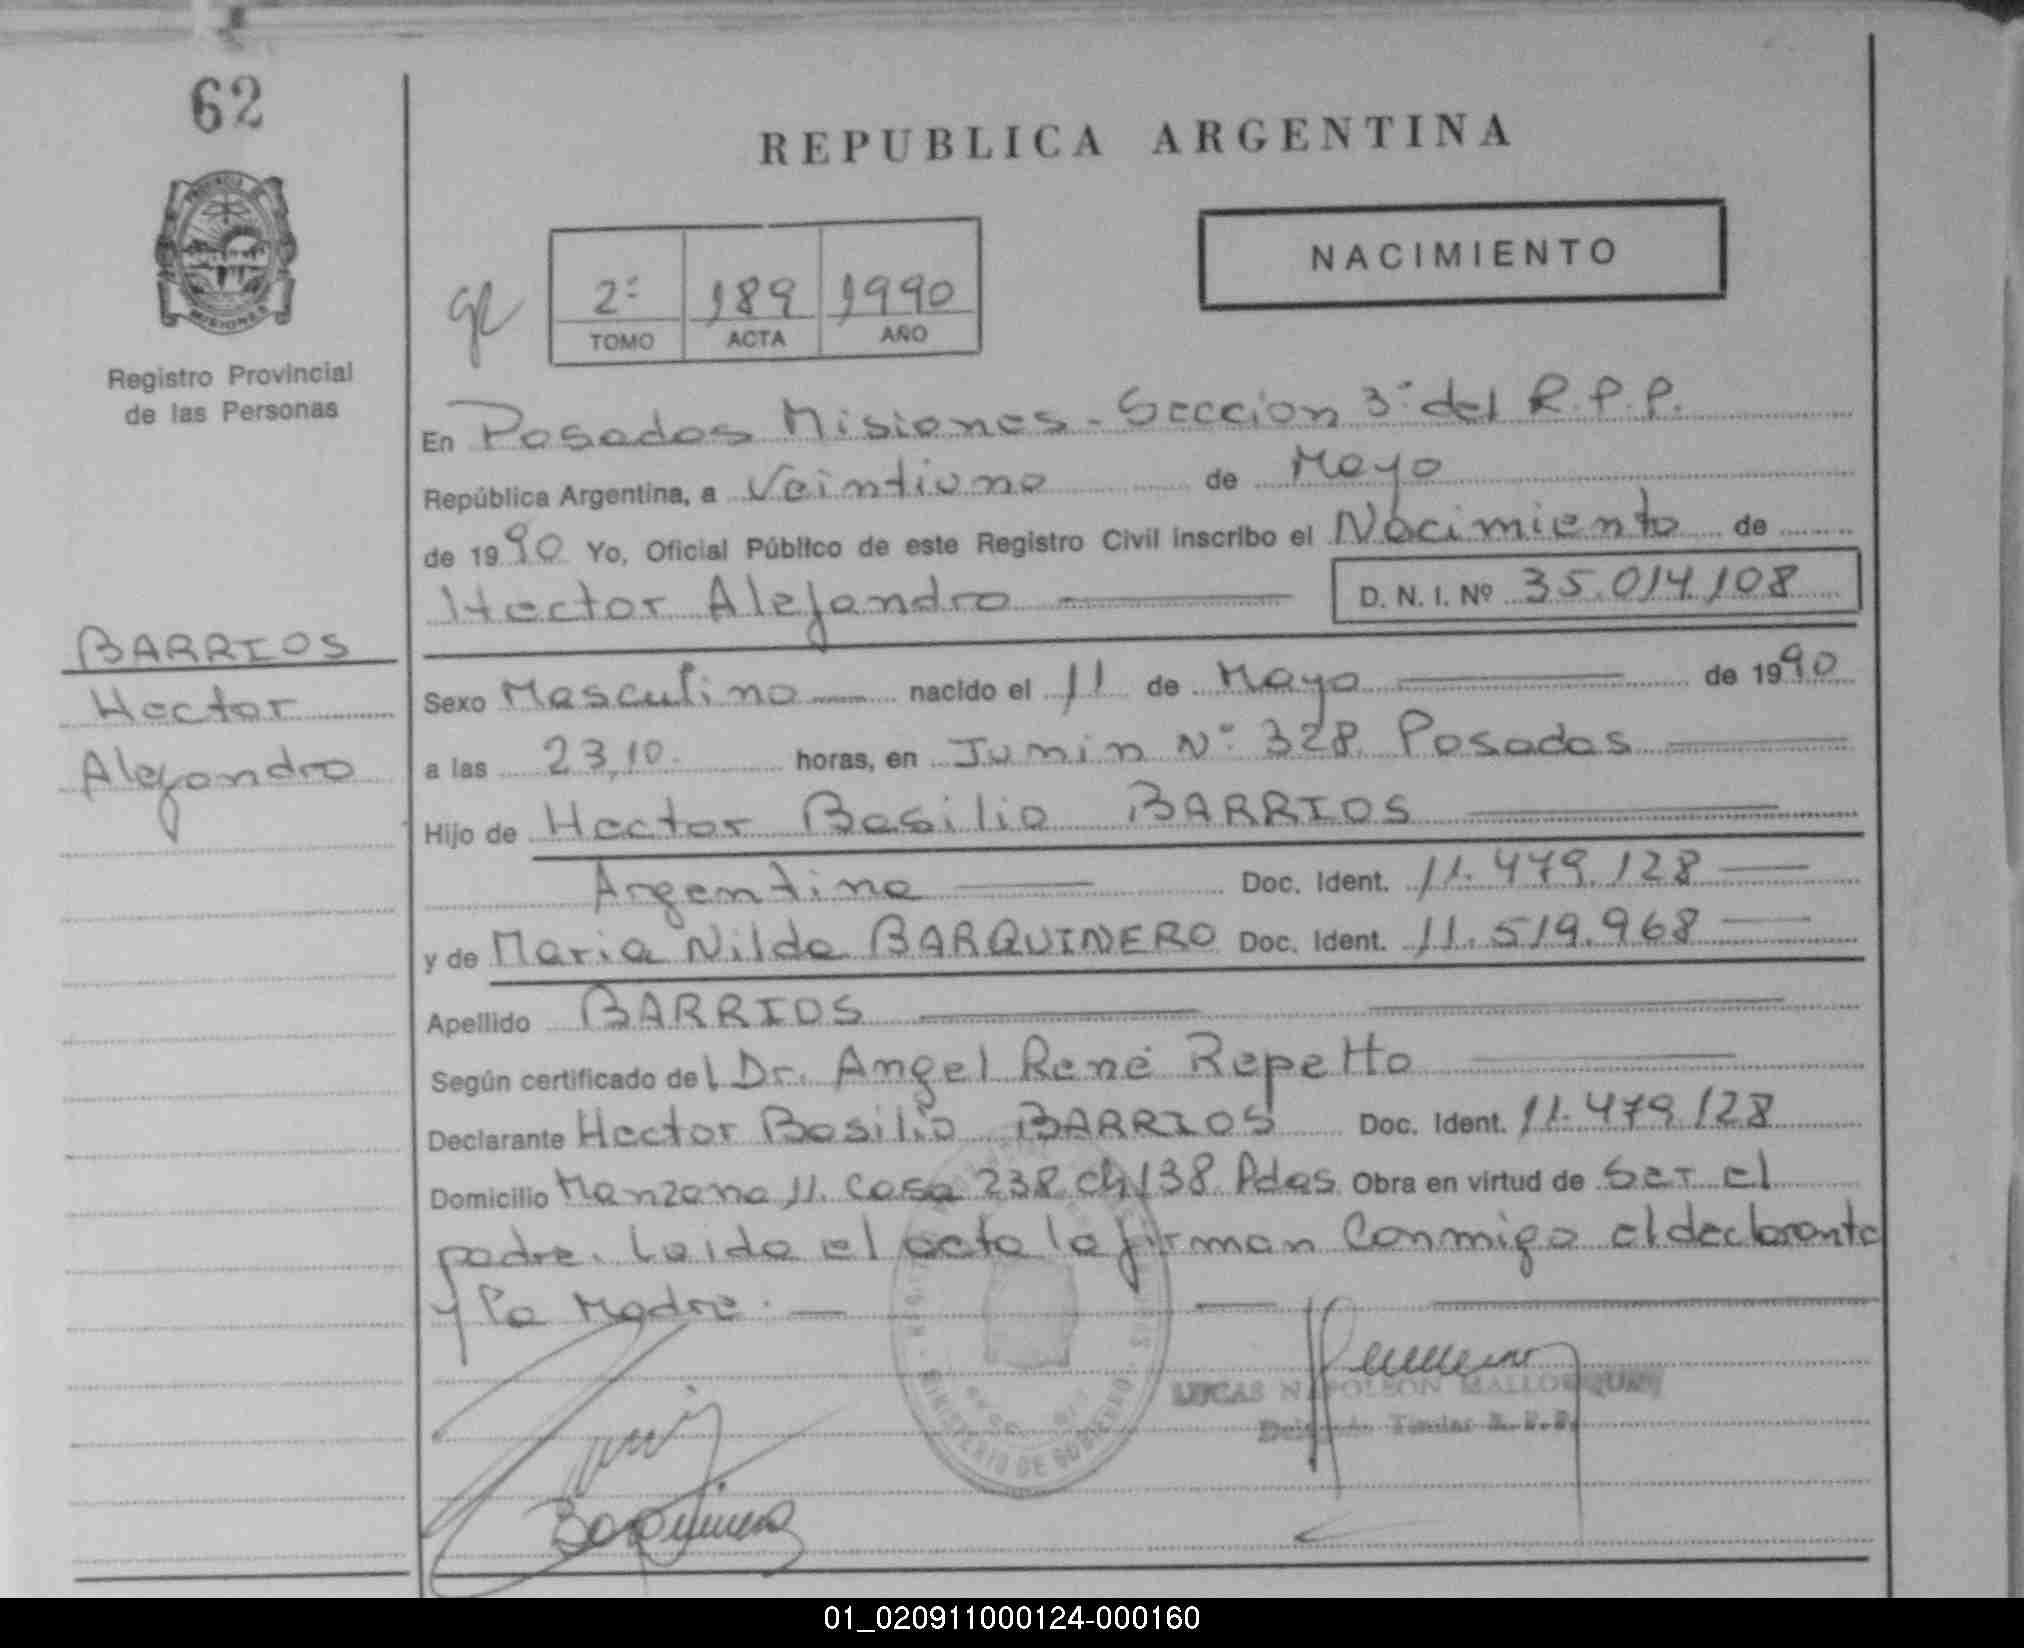 62
PROVINCIA DE
MISIONES
Registro Provincial
de las Personas
REPUBLICA ARGENTINA
NACIMIENTO
2º 189 1990
TOMO ACTA AÑO
En Posadas Misiones - Seccion 3ª del R.P.P.
República Argentina, a Veintiuno de Mayo
de 1990 Yo, Oficial Público de este Registro Civil inscribo el Nacimiento de
Hector Alejandro D. N. I. Nº 35.014.108
BARRIOS
Hector
Alejandro
Sexo Masculino nacido el 11 de Mayo de 1990
a las 23,10. horas, en Junin Nº 328 Posadas
Hijo de Hector Basilio BARRIOS
Argentina Doc. Ident. 11.479.128
y de Maria Nilda BARQUINERO Doc. Ident. 11.519.968
Apellido BARRIOS
Según certificado del Dr. Angel René Repetto
Declarante Hector Basilio BARRIOS Doc. Ident. 11.479.128
Domicilio Manzana 11. Casa 238 ch 138 Pdas Obra en virtud de Ser el
padre. Leida el acta la firman Conmigo el declarante
y la Madre.
MINISTERIO DE GOBIERNO
LUCAS NAPOLEON MALLORQUIN
Delegado Titular R. P. P.
01_020911000124-000160